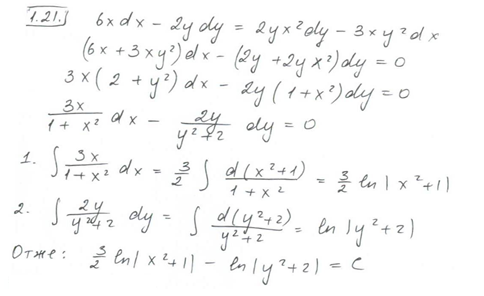 1.21. 6xdx - 2ydy = 2yx²dy - 3xy²dx
(6x + 3xy²)dx - (2y + 2yx²)dy = 0
3x(2 + y²)dx - 2y(1 + x²)dy = 0
3x/(1 + x²) dx - 2y/(y² + 2) dy = 0
1. ∫ 3x/(1 + x²) dx = 3/2 ∫ d(x² + 1)/(1 + x²) = 3/2 ln|x² + 1|
2. ∫ 2y/(y² + 2) dy = ∫ d(y² + 2)/(y² + 2) = ln|y² + 2|
Отже: 3/2 ln|x² + 1| - ln|y² + 2| = C